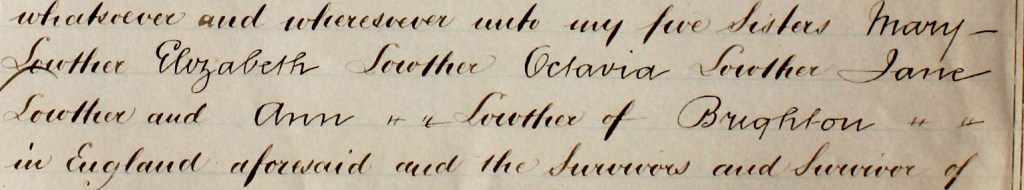 whatsoever and wheresoever unto my five Sisters Mary —
Lowther Elizabeth Lowther Octavia Lowther Jane
Lowther and Ann " " Lowther of Brighton " "
in England aforesaid and the Survivors and Survivor of